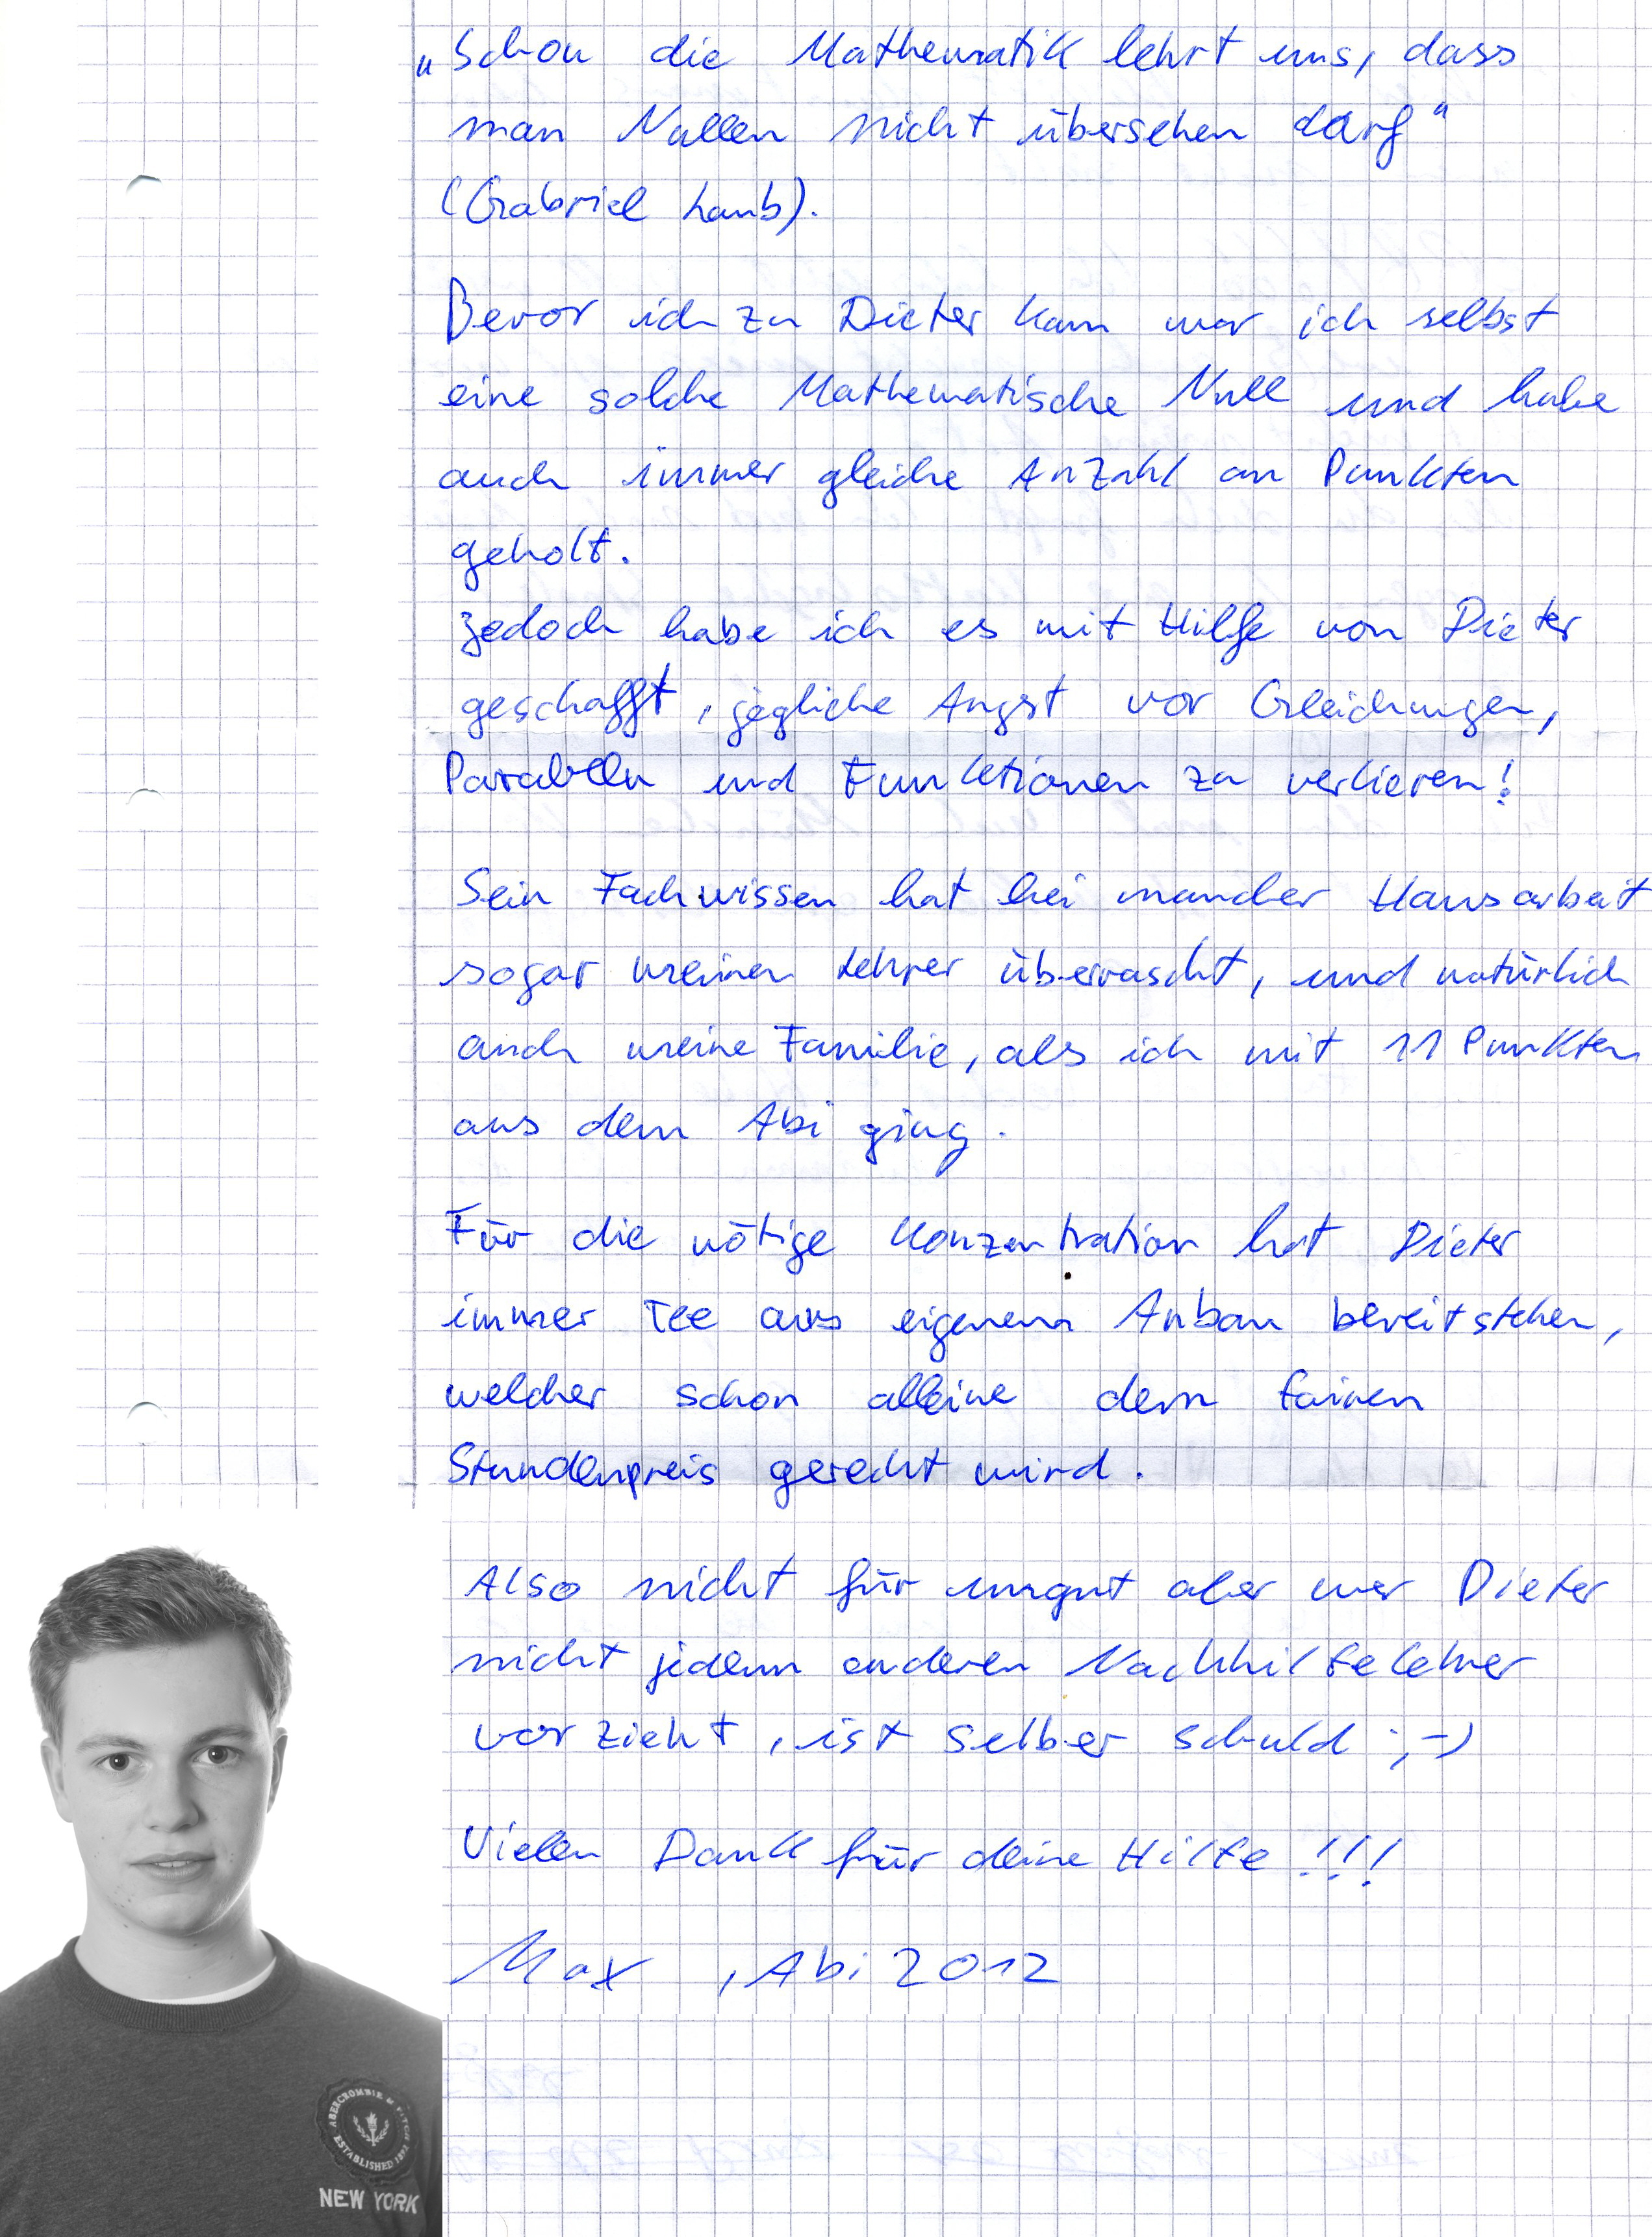 „Schon die Mathematik lehrt uns, dass
man Nullen nicht übersehen darf“
(Gabriel Laub).
Bevor ich zu Dieter kam war ich selbst
eine solche Mathematische Null und habe
auch immer gleiche Anzahl an Punkten
geholt.
Jedoch habe ich es mit Hilfe von Dieter
geschafft, jegliche Angst vor Gleichungen,
Parabeln und Funktionen zu verlieren!
Sein Fachwissen hat bei mancher Hausarbeit
sogar meinen Lehrer überrascht, und natürlich
auch meine Familie, als ich mit 11 Punkten
aus dem Abi ging.
Für die nötige Konzentration hat Dieter
immer Tee aus eigenem Anbau bereitstehen,
welcher schon alleine dem fairen
Stundenpreis gerecht wird.
Also nicht für ungut aber wer Dieter
nicht jedem anderen Nachhilfelehrer
vorzieht, ist selber schuld ;-)
Vielen Dank für deine Hilfe !!!
Max, Abi 2012
ABERCROMBIE & FITCH
ESTABLISHED 1892
NEW YORK